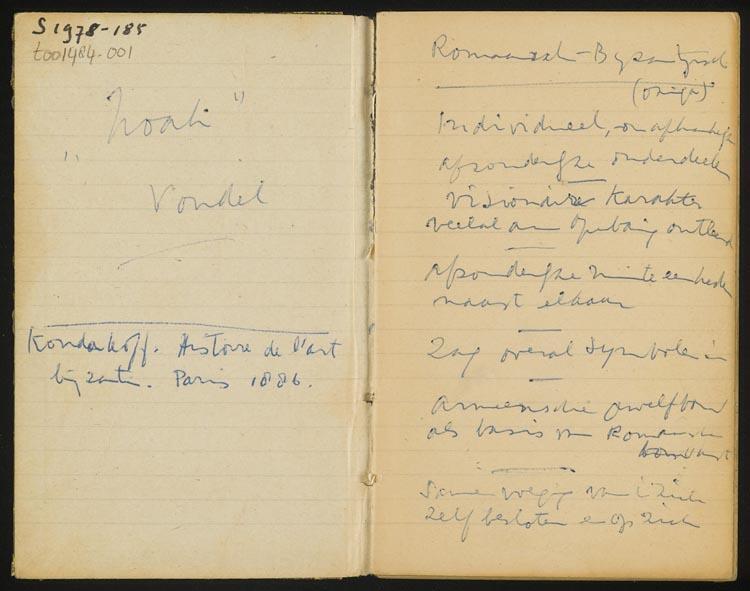 S 1978-185
t001484-001
"Noah"
Vondel
Kondakoff. Histoire de l'art
byzantin. Paris 1886.
Romaansch-Byzantijnsch
Individueel, onafhankelijk
afzonderlijke onderdeelen
Visionaire Karakter
veelal aan Openbaring ontleend
afzonderlijke ruimte eenheden
naast elkaar
Zag overal Symbolen in
Armeensche gewelfbouw
als basis van Romaansche
Samenvoeging van in zich
zelf besloten en op zich